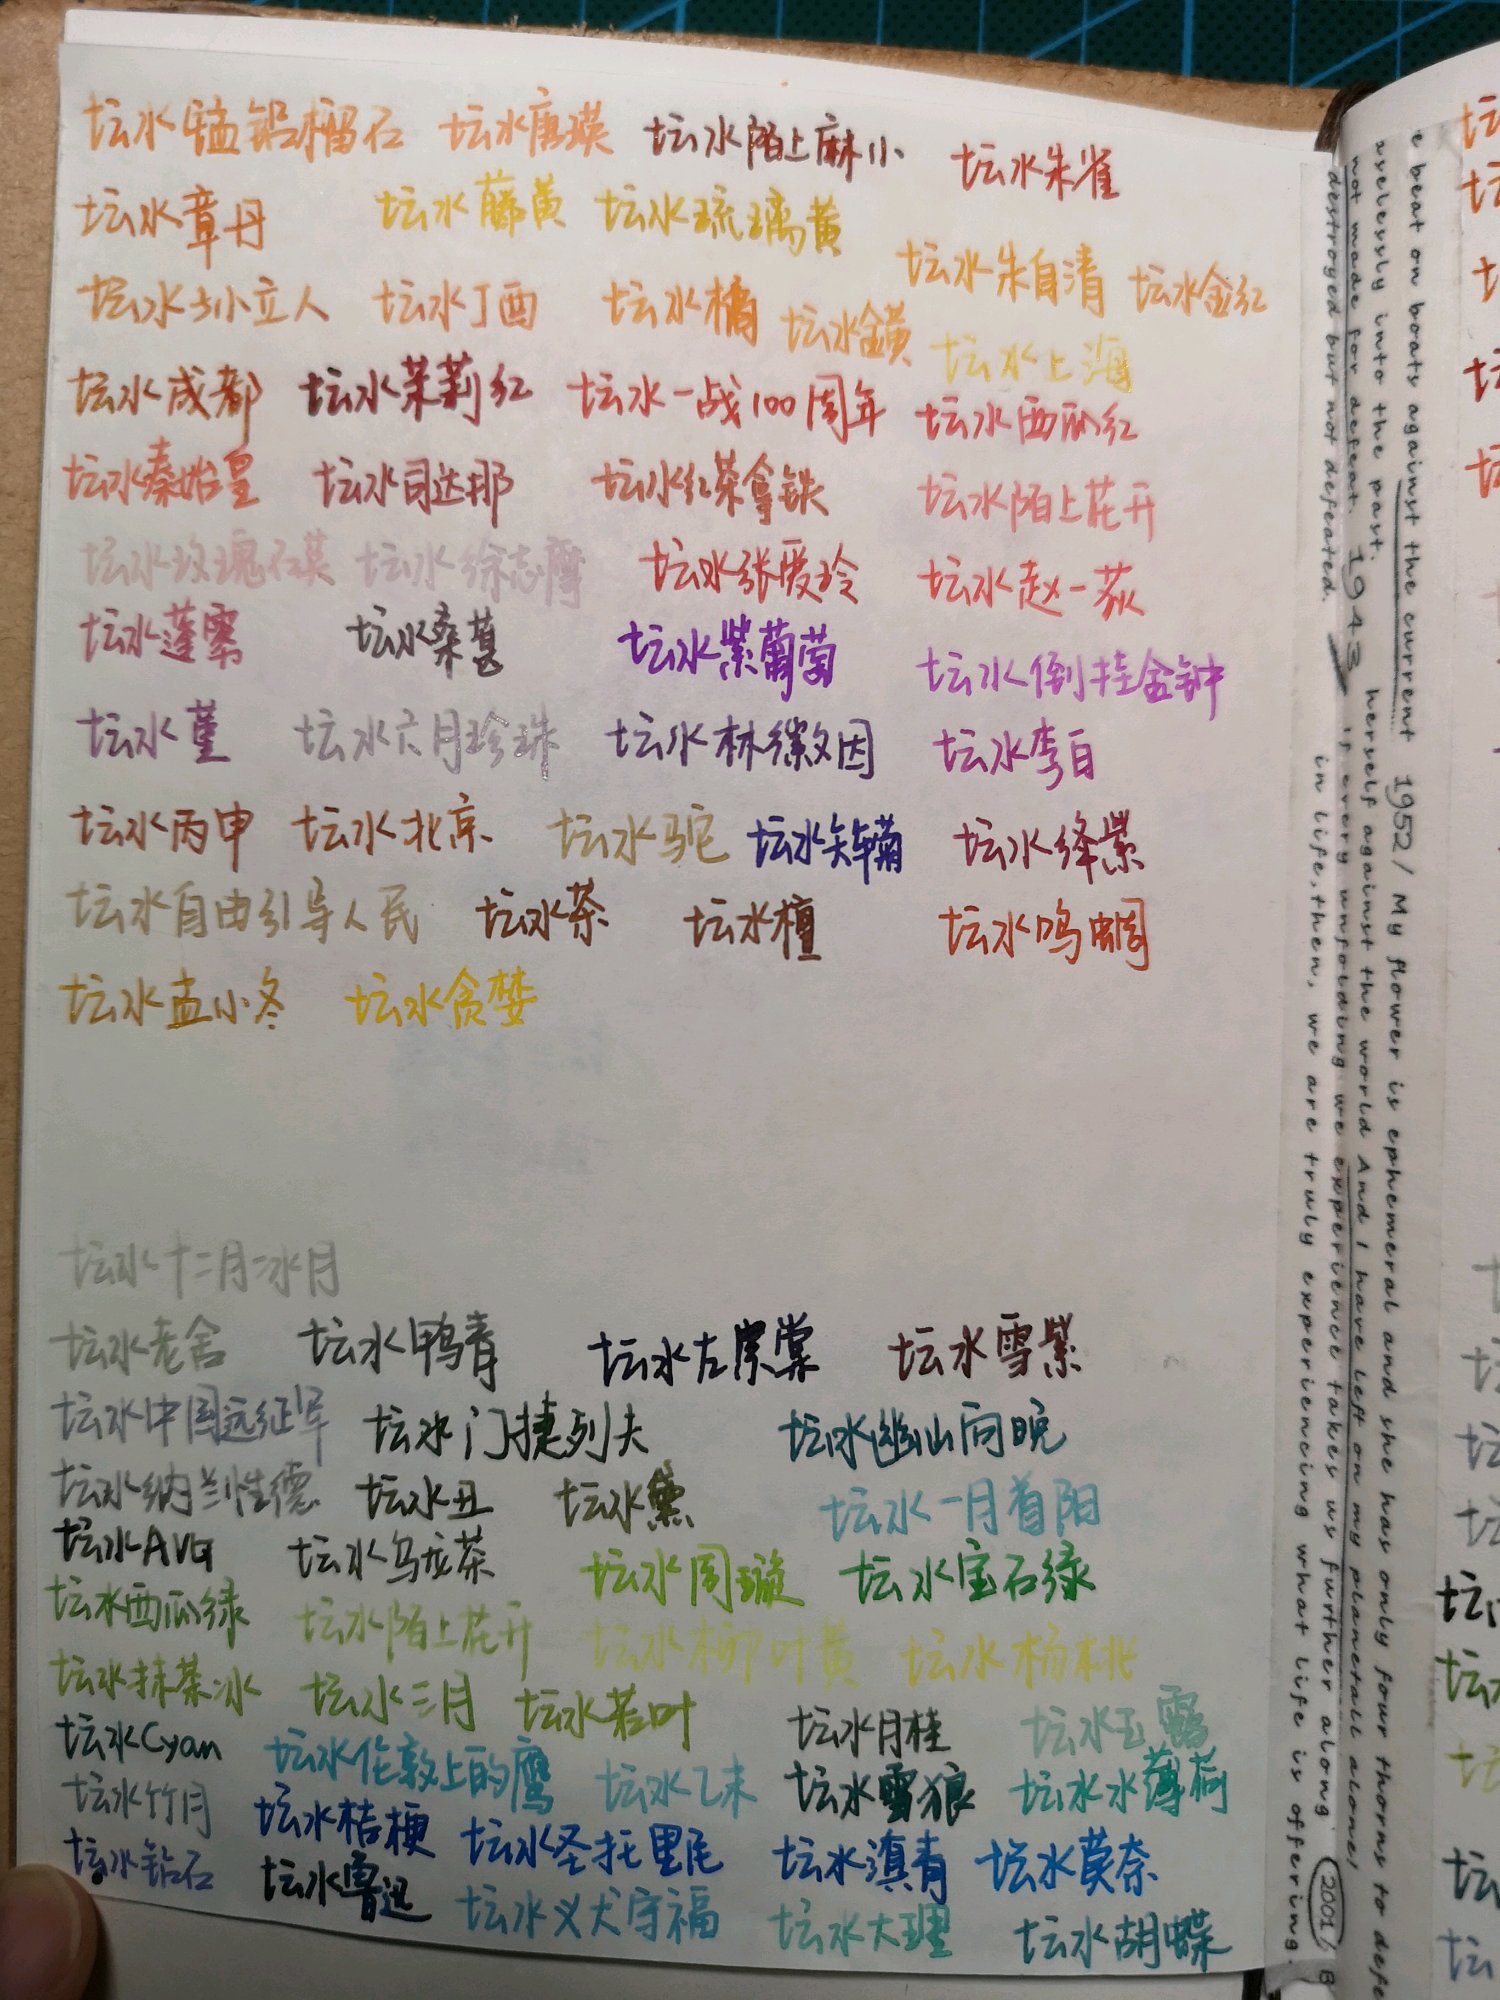 坛水锰铝榴石 坛水唐瑛 坛水陌上麻小 坛水朱雀
坛水章丹 坛水藤黄 坛水琉璃黄
坛水朱自清 坛水金红
坛水小立人 坛水丁酉 坛水橘 坛水金黄 坛水上海
坛水成都 坛水茉莉红 坛水一战100周年 坛水西瓜红
坛水秦始皇 坛水司达那 坛水红茶拿铁 坛水陌上花开
坛水玫瑰石英 坛水徐志摩 坛水张爱玲 坛水赵一荻
坛水蓬蔂 坛水桑葚 坛水紫葡萄 坛水倒挂金钟
坛水堇 坛水六月珍珠 坛水林徽因 坛水李白
坛水丙申 坛水北京 坛水驼 坛水矢车菊 坛水绛紫
坛水自由引导人民 坛水茶 坛水檀 坛水鸣蜩
坛水孟小冬 坛水贪婪
坛水十二月冰月
坛水老舍 坛水鸭青 坛水左宗棠 坛水雪紫
坛水中国远征军 坛水门捷列夫 坛水幽山向晚
坛水纳兰性德 坛水丑 坛水黛 坛水一月首阳
坛水AVG 坛水乌龙茶 坛水周璇 坛水宝石绿
坛水西瓜绿 坛水陌上花开 坛水柳叶黄 坛水杨桃
坛水抹茶冰 坛水三月 坛水若叶 坛水月桂 坛水玉露
坛水Cyan 坛水伦敦上的鹰 坛水乙未 坛水雪狼 坛水水薄荷
坛水竹月 坛水桔梗 坛水圣托里尼 坛水滇青 坛水莫奈
坛水钻石 坛水鲁迅 坛水义犬守福 坛水大理 坛水胡蝶
e beat on boats against the current 1952/ My flower is ephemeral and she has only four thorns to defe
aselessly into the past. herself against the world And I have left on my planet all alone!
not made for defeat. 1943 If every unfolding we experience takes us further along 2001/B
destroyed but not defeated. in life, then, we are truly experiencing what life is offering.